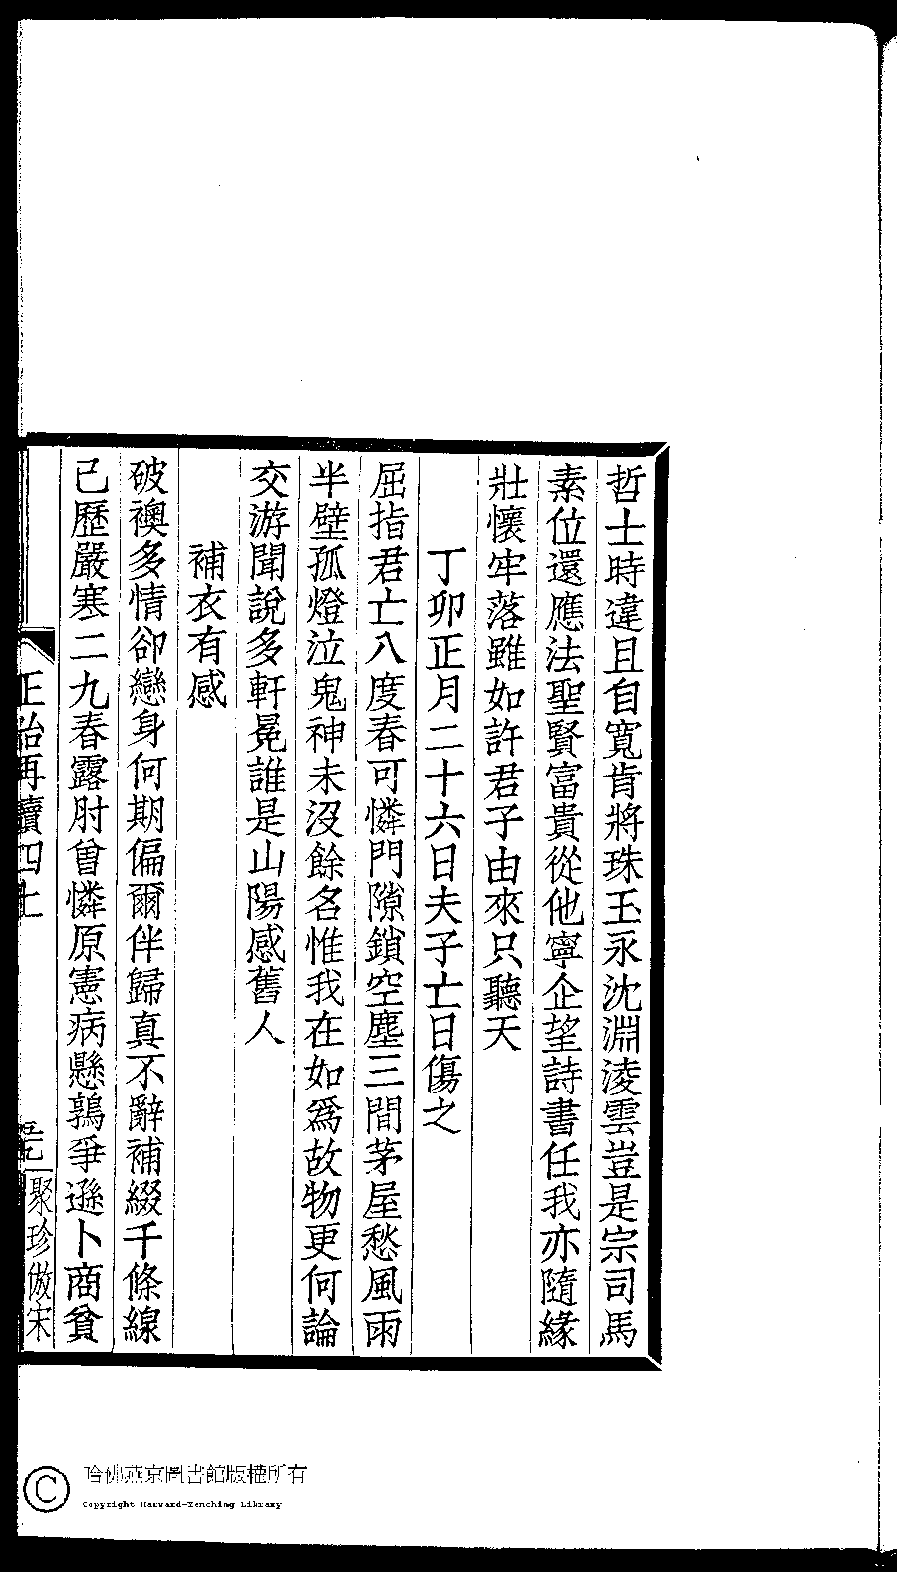 哲士時違且自寬肯將珠玉永沈淵淩雲豈是宗司馬
素位還應法聖賢富貴從他寧企望詩書任我亦隨緣
壯懷牢落雖如許君子由來只聽天
丁卯正月二十六日夫子亡日傷之
屈指君亡八度春可憐門隙鎖空塵三間茅屋愁風雨
半壁孤燈泣鬼神未沒餘名惟我在如爲故物更何論
交游聞說多軒冕誰是山陽感舊人
補衣有感
破襖多情卻戀身何期偏爾伴歸真不辭補綴千條線
已歷嚴寒二九春露肘曾憐原憲病懸鶉爭遜卜商貧
正始再續四上
聚珍倣宋
哈佛燕京圖書館版權所有
Copyright Harvard-Yenching Library